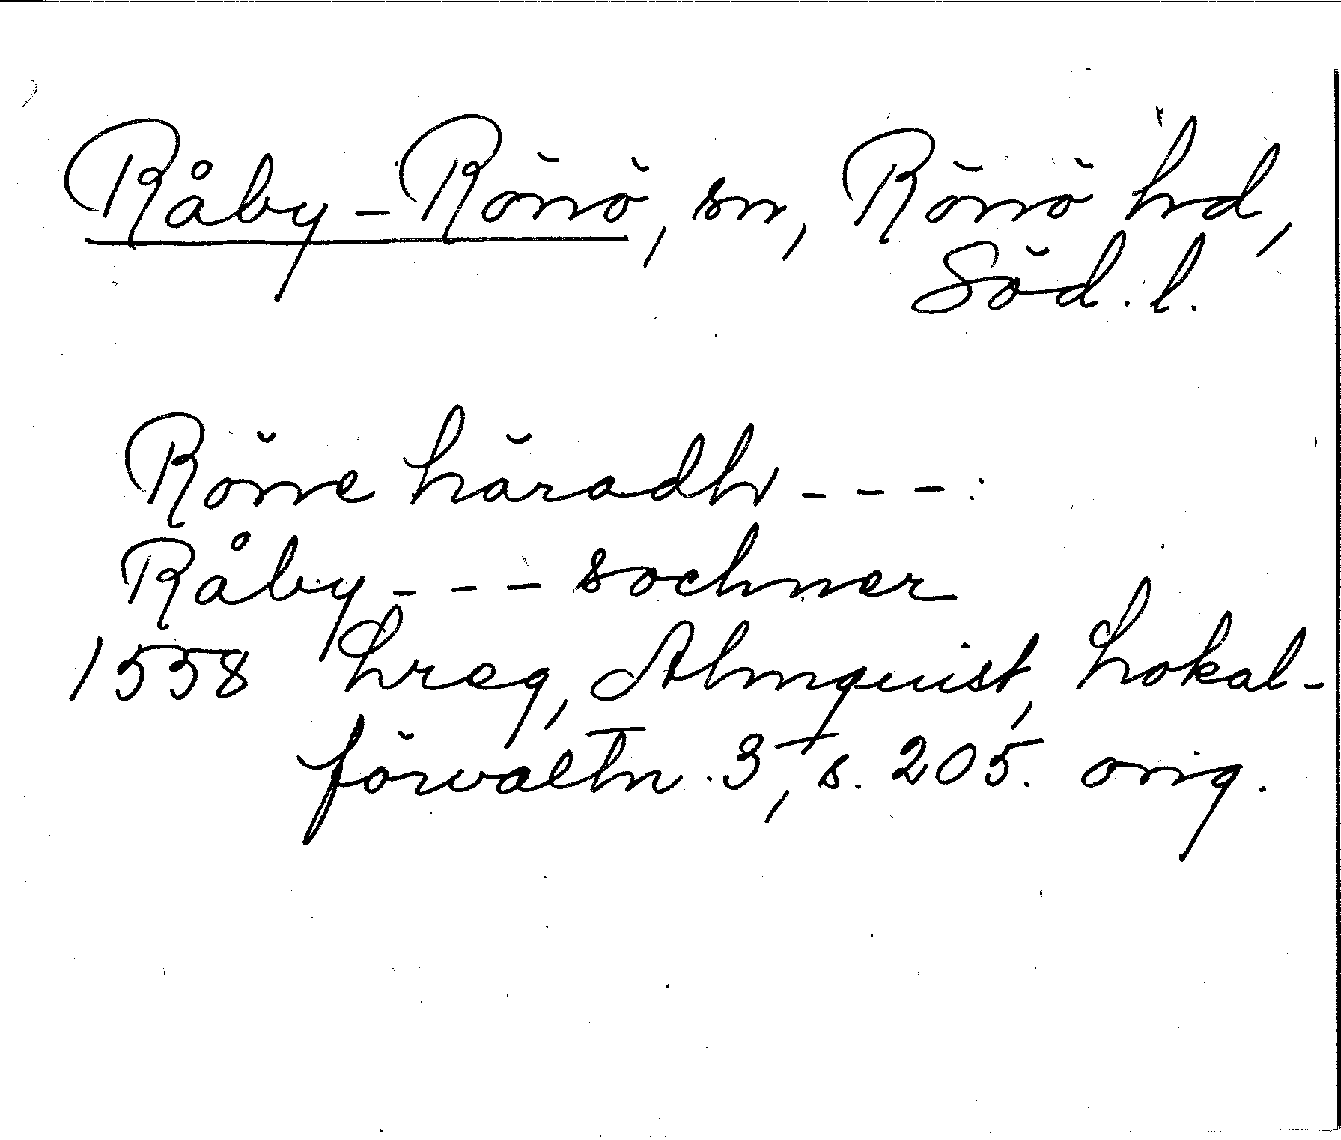 Råby-Rönö, sn, Rönö hd,
Söd. l.
Röne häradh - - - :
Råby - - - sochner
1558 hreg, Almquist, Lokal-
förvaltn. 3, s. 205. orig.